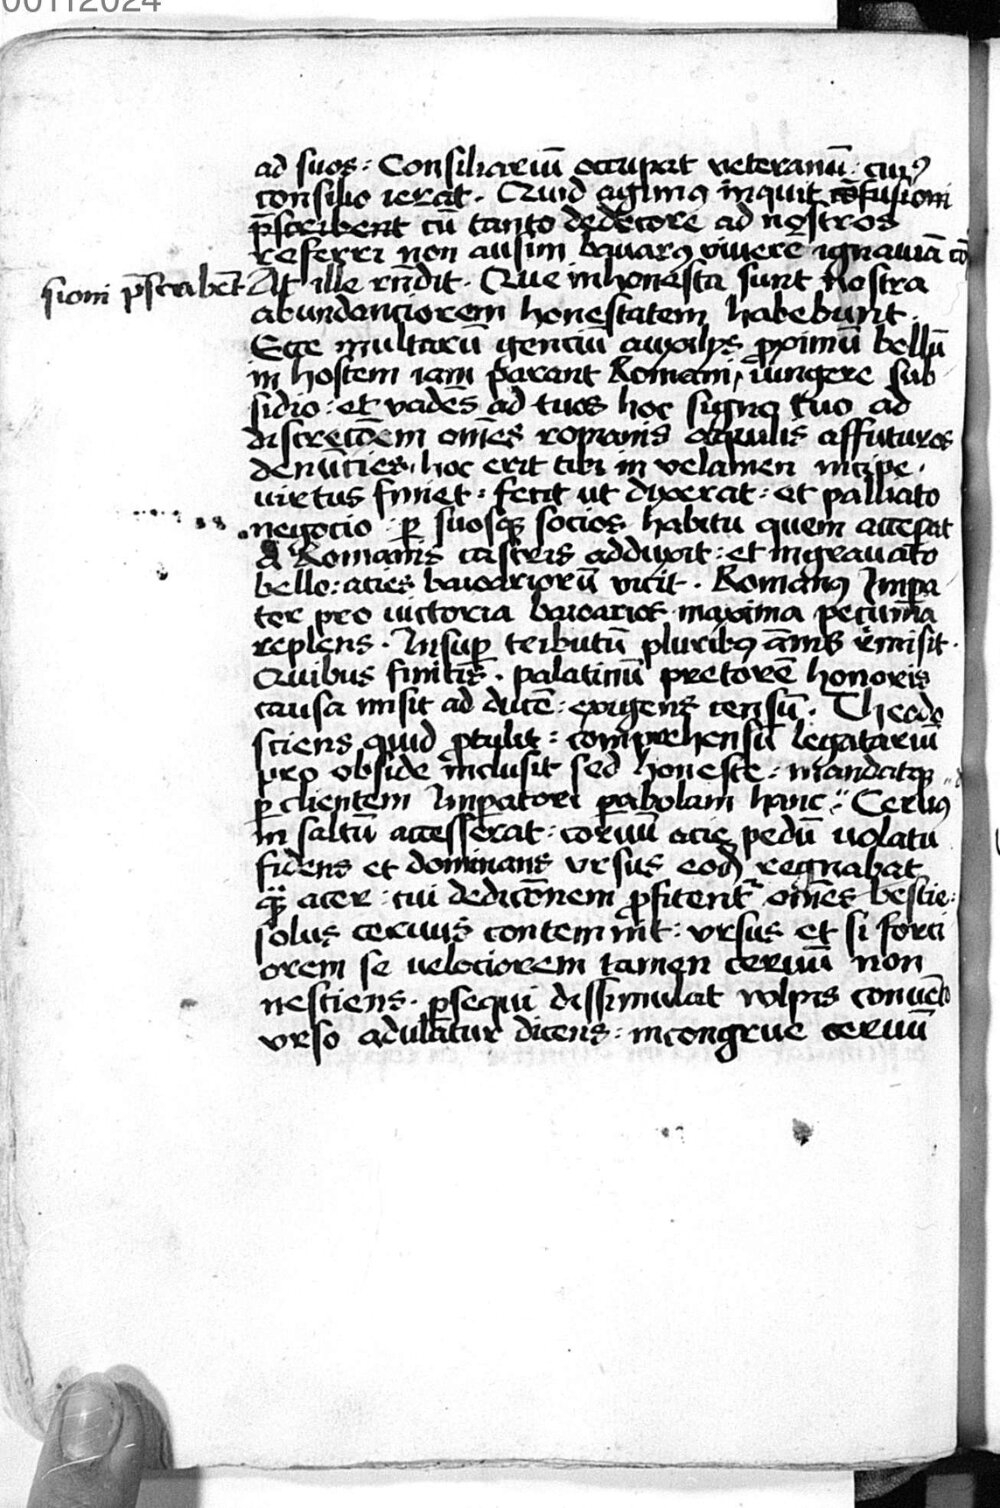 00112024
ad suos : Consiliariū occupat veteranū : cuiꝰ
consilio ierat . Quid agimus inquit cōfusioni
p̄scribent cū tanto dedecore ad nostros
referri non ausim bauarꝰ viuere ignauiā cō
sioni p̄scribēt At ille rn̄dit . Que inhonesta sunt nostra
abundanciorem honestatem habebunt .
Ecce multarū genciū auxilijs ꝓximū bellū
in hostem iam parant Romani , iungere sub
sidio : et vades ad tuos hoc signo tuo ad
discrecōem om̄es romanis aquilis affuturos
denūcies , hoc erit tibi in velamen incipe .
virtus finiet : fecit ut dixerat : et palliato
negocio : ꝑ suosqꝫ socios habitu quem acceꝑat
A Romanis castris adduxit : et ingrauato
bello : acies bauariorū vicit . Romanꝰ Impa
tor pro victoria bauarios maxima pecunia
replens . Insuꝑ tributū pluribꝰ ānis remisit .
Quibus finitis . palatinū pretorē honoris
causa misit ad ducē : exigens censū . Theodo
sciens quid ꝓtulit : comprehensū legatariū
pro obside inclusit sed honeste : mandatqꝫ
ꝑ clientem Imꝑatori ꝑabolam hanc : Ceruꝰ
in saltū accesserat : coruū acie pedū uolatu
fidens et dominans vrsus eod̄ regnabat
qꝫ acer : cui dedicōnem ꝓfitent᷑ om̄es bestie :
solus ceruus contemnit : vrsus et si forci
orem se uelociorem tamen ceruū non
nesciens . ꝑsequi dissimulat vulpis
vrso adulatur dicens : incongrue ceruū